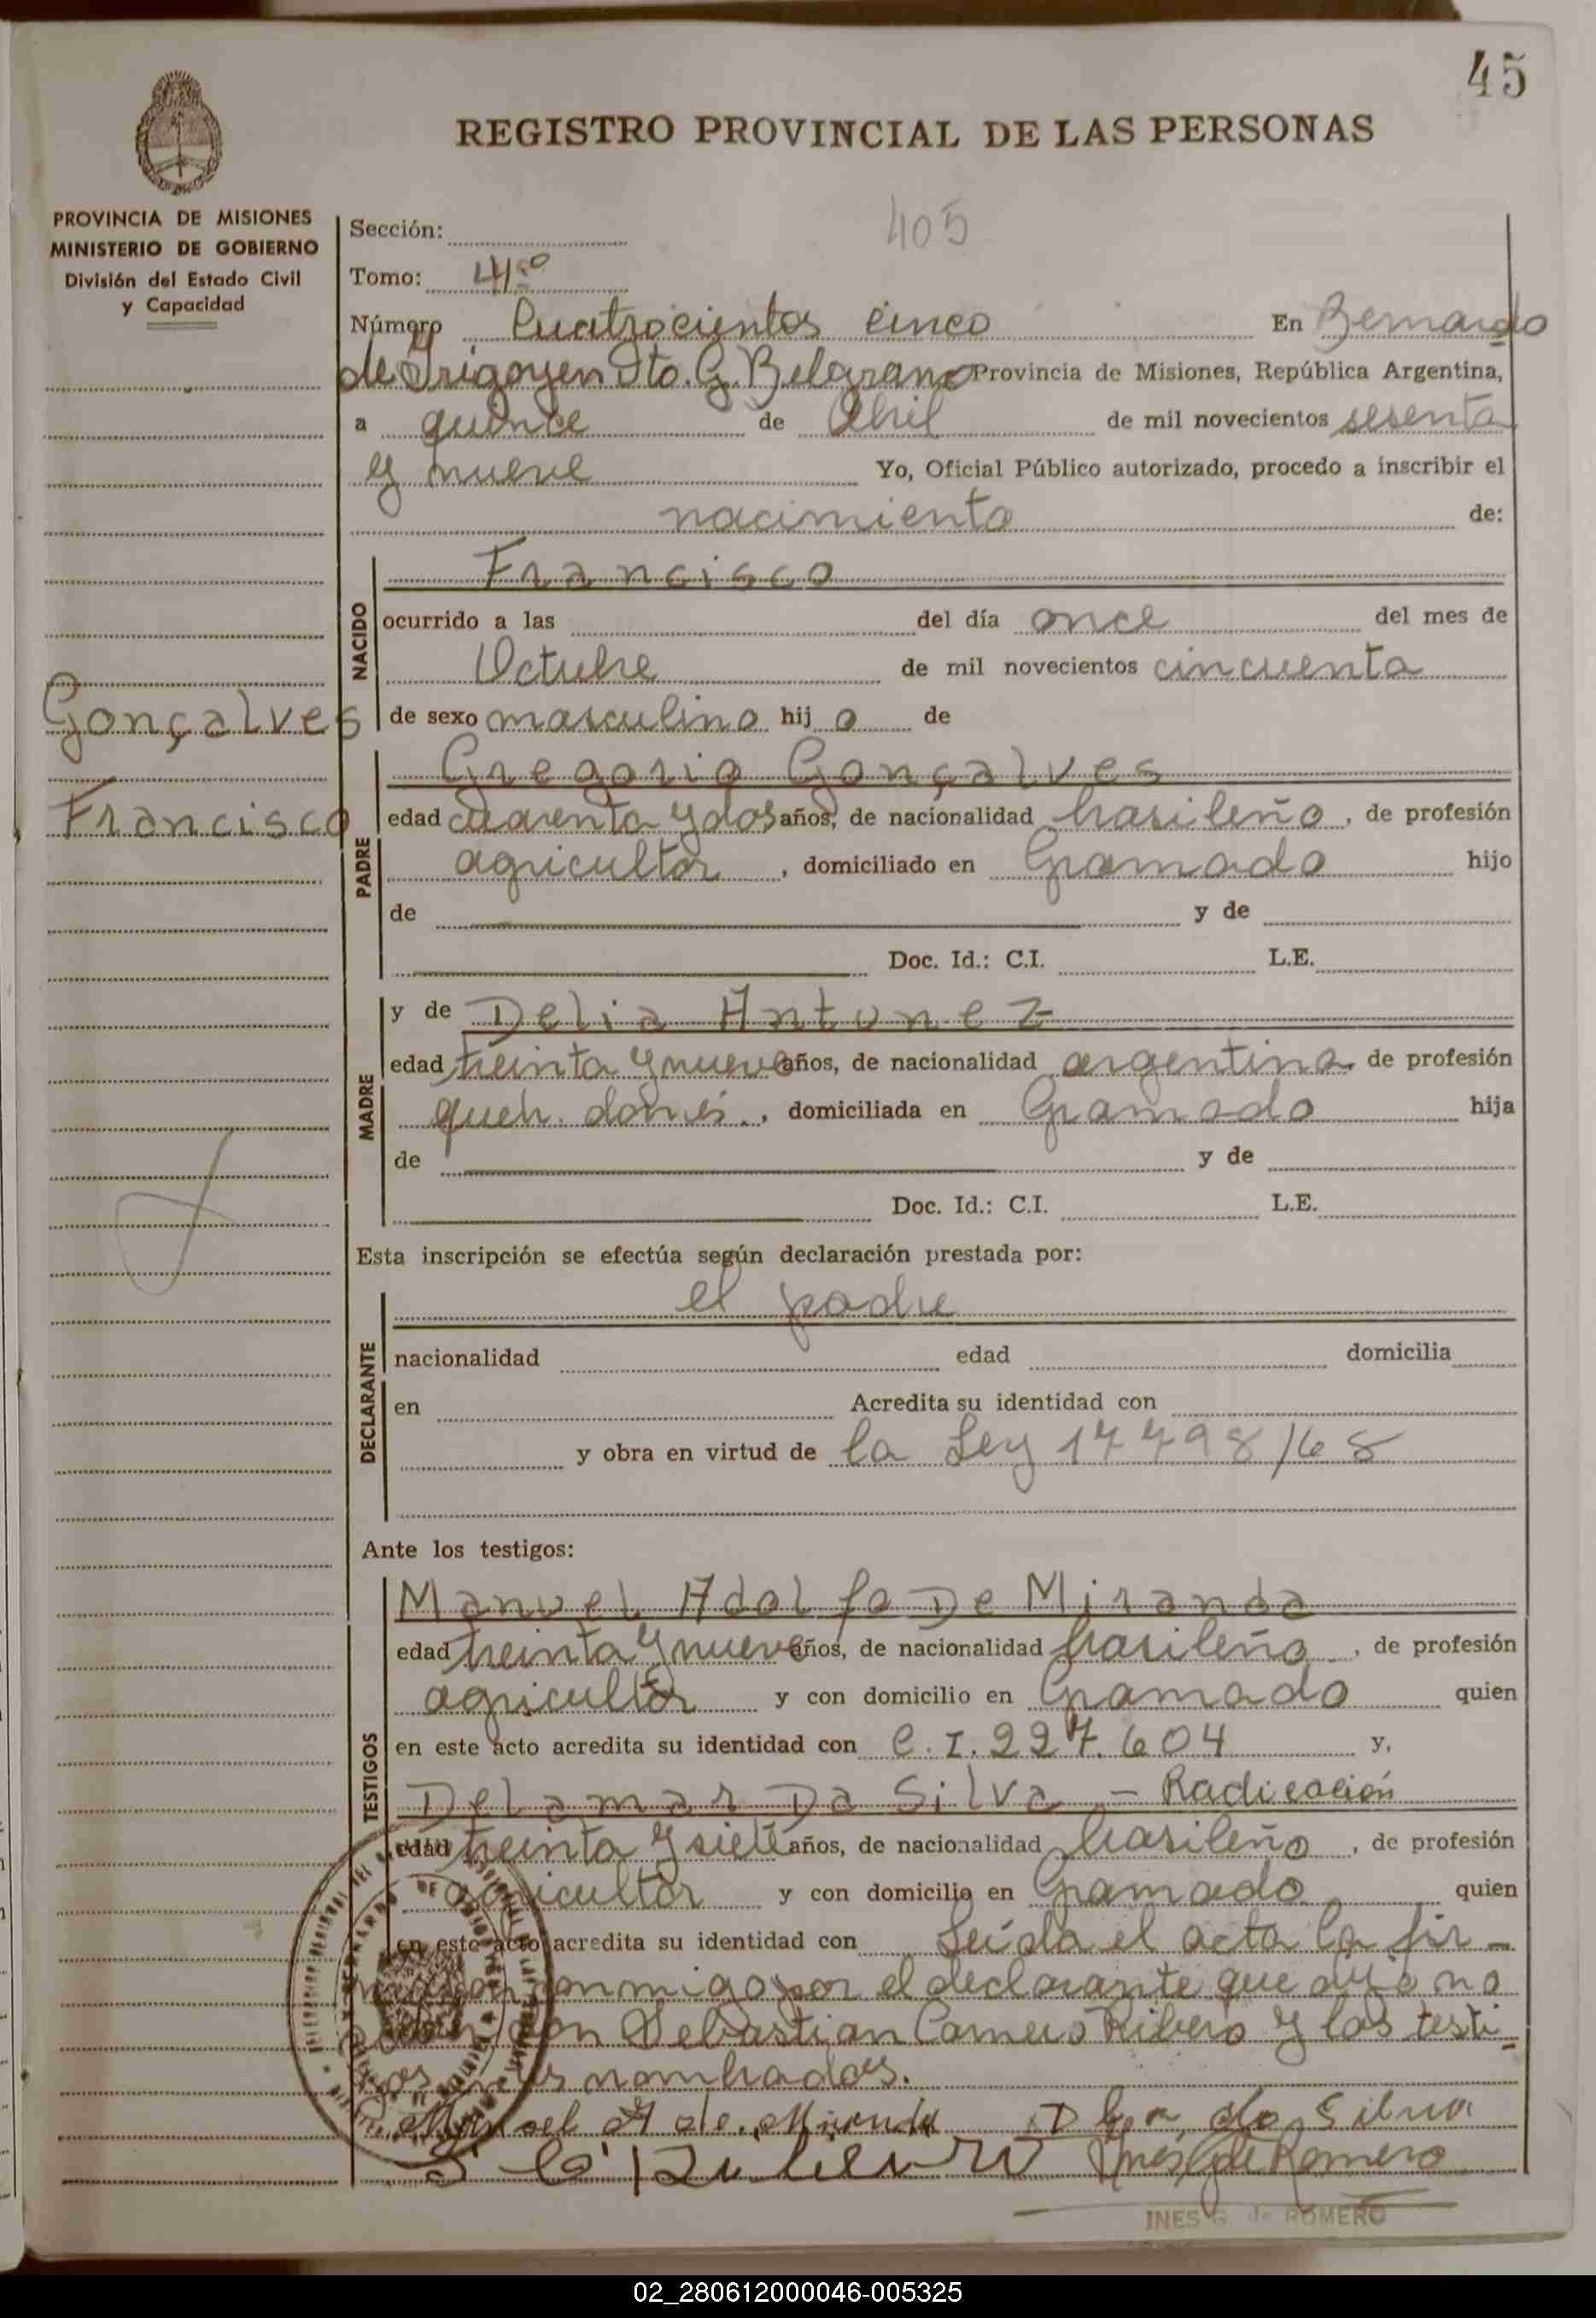 45
REGISTRO PROVINCIAL DE LAS PERSONAS
PROVINCIA DE MISIONES
MINISTERIO DE GOBIERNO
División del Estado Civil
y Capacidad
405
Sección:
Tomo: 4º
Número Cuatrocientos cinco En Bernardo
de Irigoyen Dto. G. Belgrano Provincia de Misiones, República Argentina,
a quince de Abril de mil novecientos sesenta
y nueve Yo, Oficial Público autorizado, procedo a inscribir el
nacimiento de:
NACIDO
Francisco
ocurrido a las del día once del mes de
Octubre de mil novecientos cincuenta
Gonçalves
Francisco
de sexo masculino hij o de
PADRE
Gregorio Gonçalves
edad cuarenta y dos años, de nacionalidad brasileño, de profesión
agricultor, domiciliado en Gramado hijo
de y de
Doc. Id.: C.I. L.E.
MADRE
y de Delia Antunez
edad treinta y nueve años, de nacionalidad argentina, de profesión
queh. domés., domiciliada en Gramado hija
de y de
Doc. Id.: C.I. L.E.
Esta inscripción se efectúa según declaración prestada por:
DECLARANTE
el padre
nacionalidad edad domicilia
en Acredita su identidad con
y obra en virtud de la Ley 17798/68
Ante los testigos:
TESTIGOS
Manuel Adolfo De Miranda
edad treinta y nueve años, de nacionalidad brasileño, de profesión
agricultor y con domicilio en Gramado quien
en este acto acredita su identidad con C.I. 227.604 y,
Delamar Da Silva - Radicación
edad treinta y siete años, de nacionalidad brasileño, de profesión
agricultor y con domicilio en Gramado quien
en este acto acredita su identidad con Leída el acta la fir-
conmigo por el declarante que dijo no
Sebastian Carneiro Ribero y los testi
gos nombrados.
Manoel A de Miranda da Silva
S C Ribeiro Inés G de Romero
INES G. de ROMERO
02_280612000046-005325